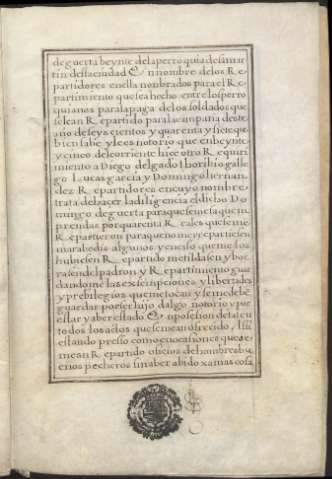 deguerta beynte dela perroquia desanmar
tin destaciudad En nombre delos Re
partidores enella nonbrados para el Re
partimiento que sea hecho entre los perro
quianos para la paga de los soldados que
selean Repartido para lacanpana deste
año de seys cientos y quarenta y siete que
bien sabe y le es notorio que en beynte
y cinco del corriente hice otro Requiri
miento a Diego delgado
go Lucas garcia y Domingo hernan
dez Repartidores en cuyo nombre
trata de hacer la diligencia el dicho Do
mingo de guerta para que se meta que m
prendas por quarenta Reales que se me
Repartieron para que no me repartiesen
marabedis algunos y en caso que me los
hubiesen Repartido me tildasen y bor
rasen del padron y Repartimiento guar
dandome las exsenpciones y libertades
y prebilegios que me tocan y se me deben
guardar por ser hijo dalgo notorio y por
estar y aber estado En posesion de tal en
todos los actos que se mean ofrecido, Assi
estando preso como en ocasiones que se
mean Repartido oficios de honbres bu
enos pecheros sin aber abido xamas cosa